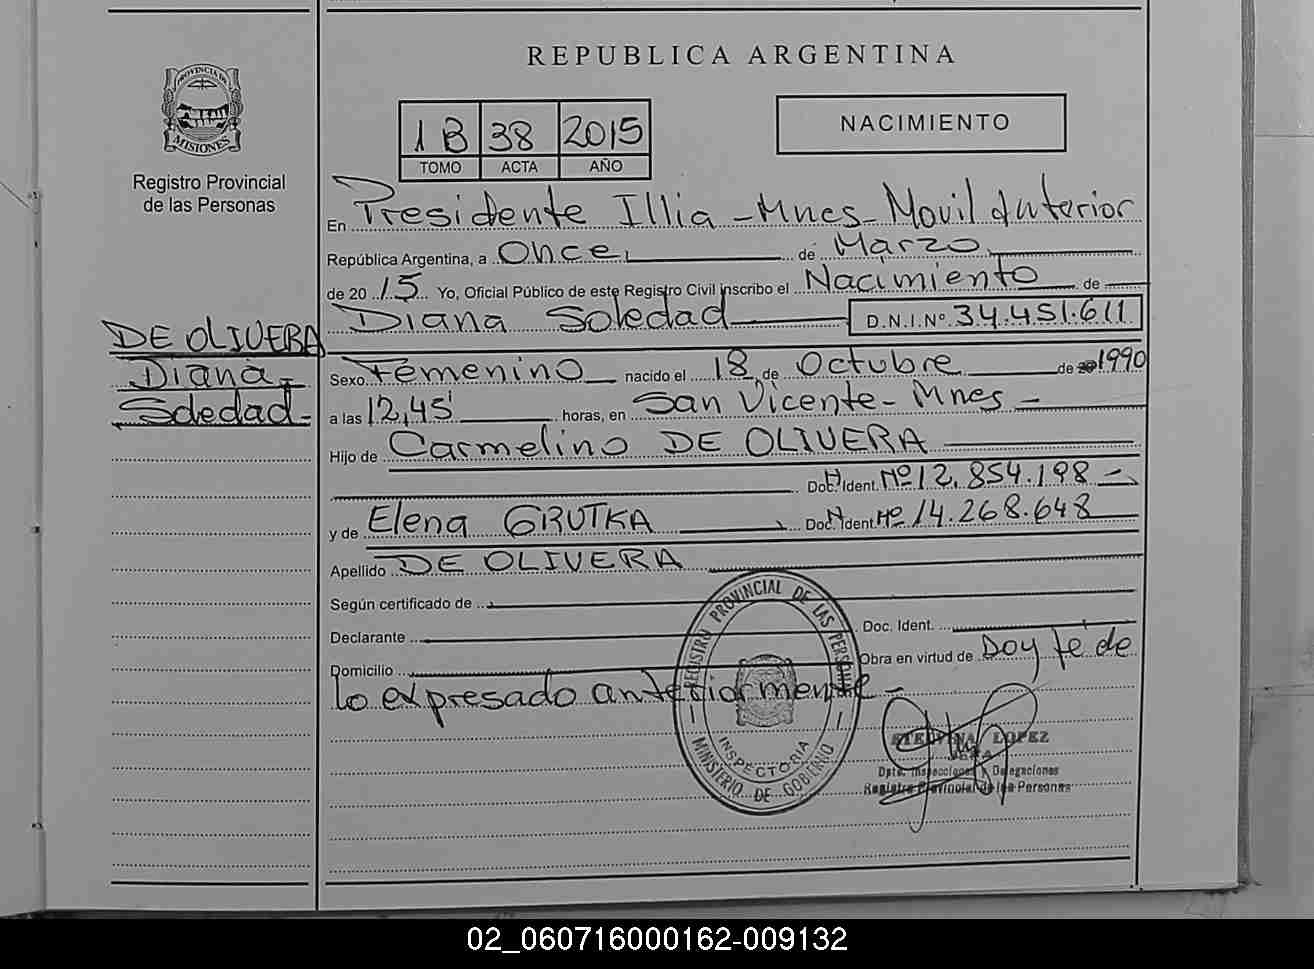 REPUBLICA ARGENTINA
PROVINCIA DE
MISIONES
Registro Provincial
de las Personas
1B 38 2015
TOMO ACTA AÑO
NACIMIENTO
En Presidente Illia - Mnes - Movil Anterior
República Argentina, a Once de Marzo
de 20 15 Yo, Oficial Público de este Registro Civil inscribo el Nacimiento de
Diana Soledad D.N.I.Nº 34.451.611
DE OLIVERA
Diana
Soledad
Sexo Femenino nacido el 18 de Octubre de 1990
a las 12,45 horas, en San Vicente - Mnes -
Hijo de Carmelino DE OLIVERA
Doc. Ident. Nº 12.854.198
y de Elena GRUTKA Doc. Ident. Nº 14.268.648
Apellido DE OLIVERA
Según certificado de
Declarante Doc. Ident.
Domicilio Obra en virtud de Doy fé de
lo expresado anteriormente -
REGISTRO PROVINCIAL DE LAS PERSONAS
INSPECTORIA
MINISTERIO DE GOBIERNO
LOPEZ
Dpto. Inspecciones y Delegaciones
Registro Provincial de las Personas
02_060716000162-009132